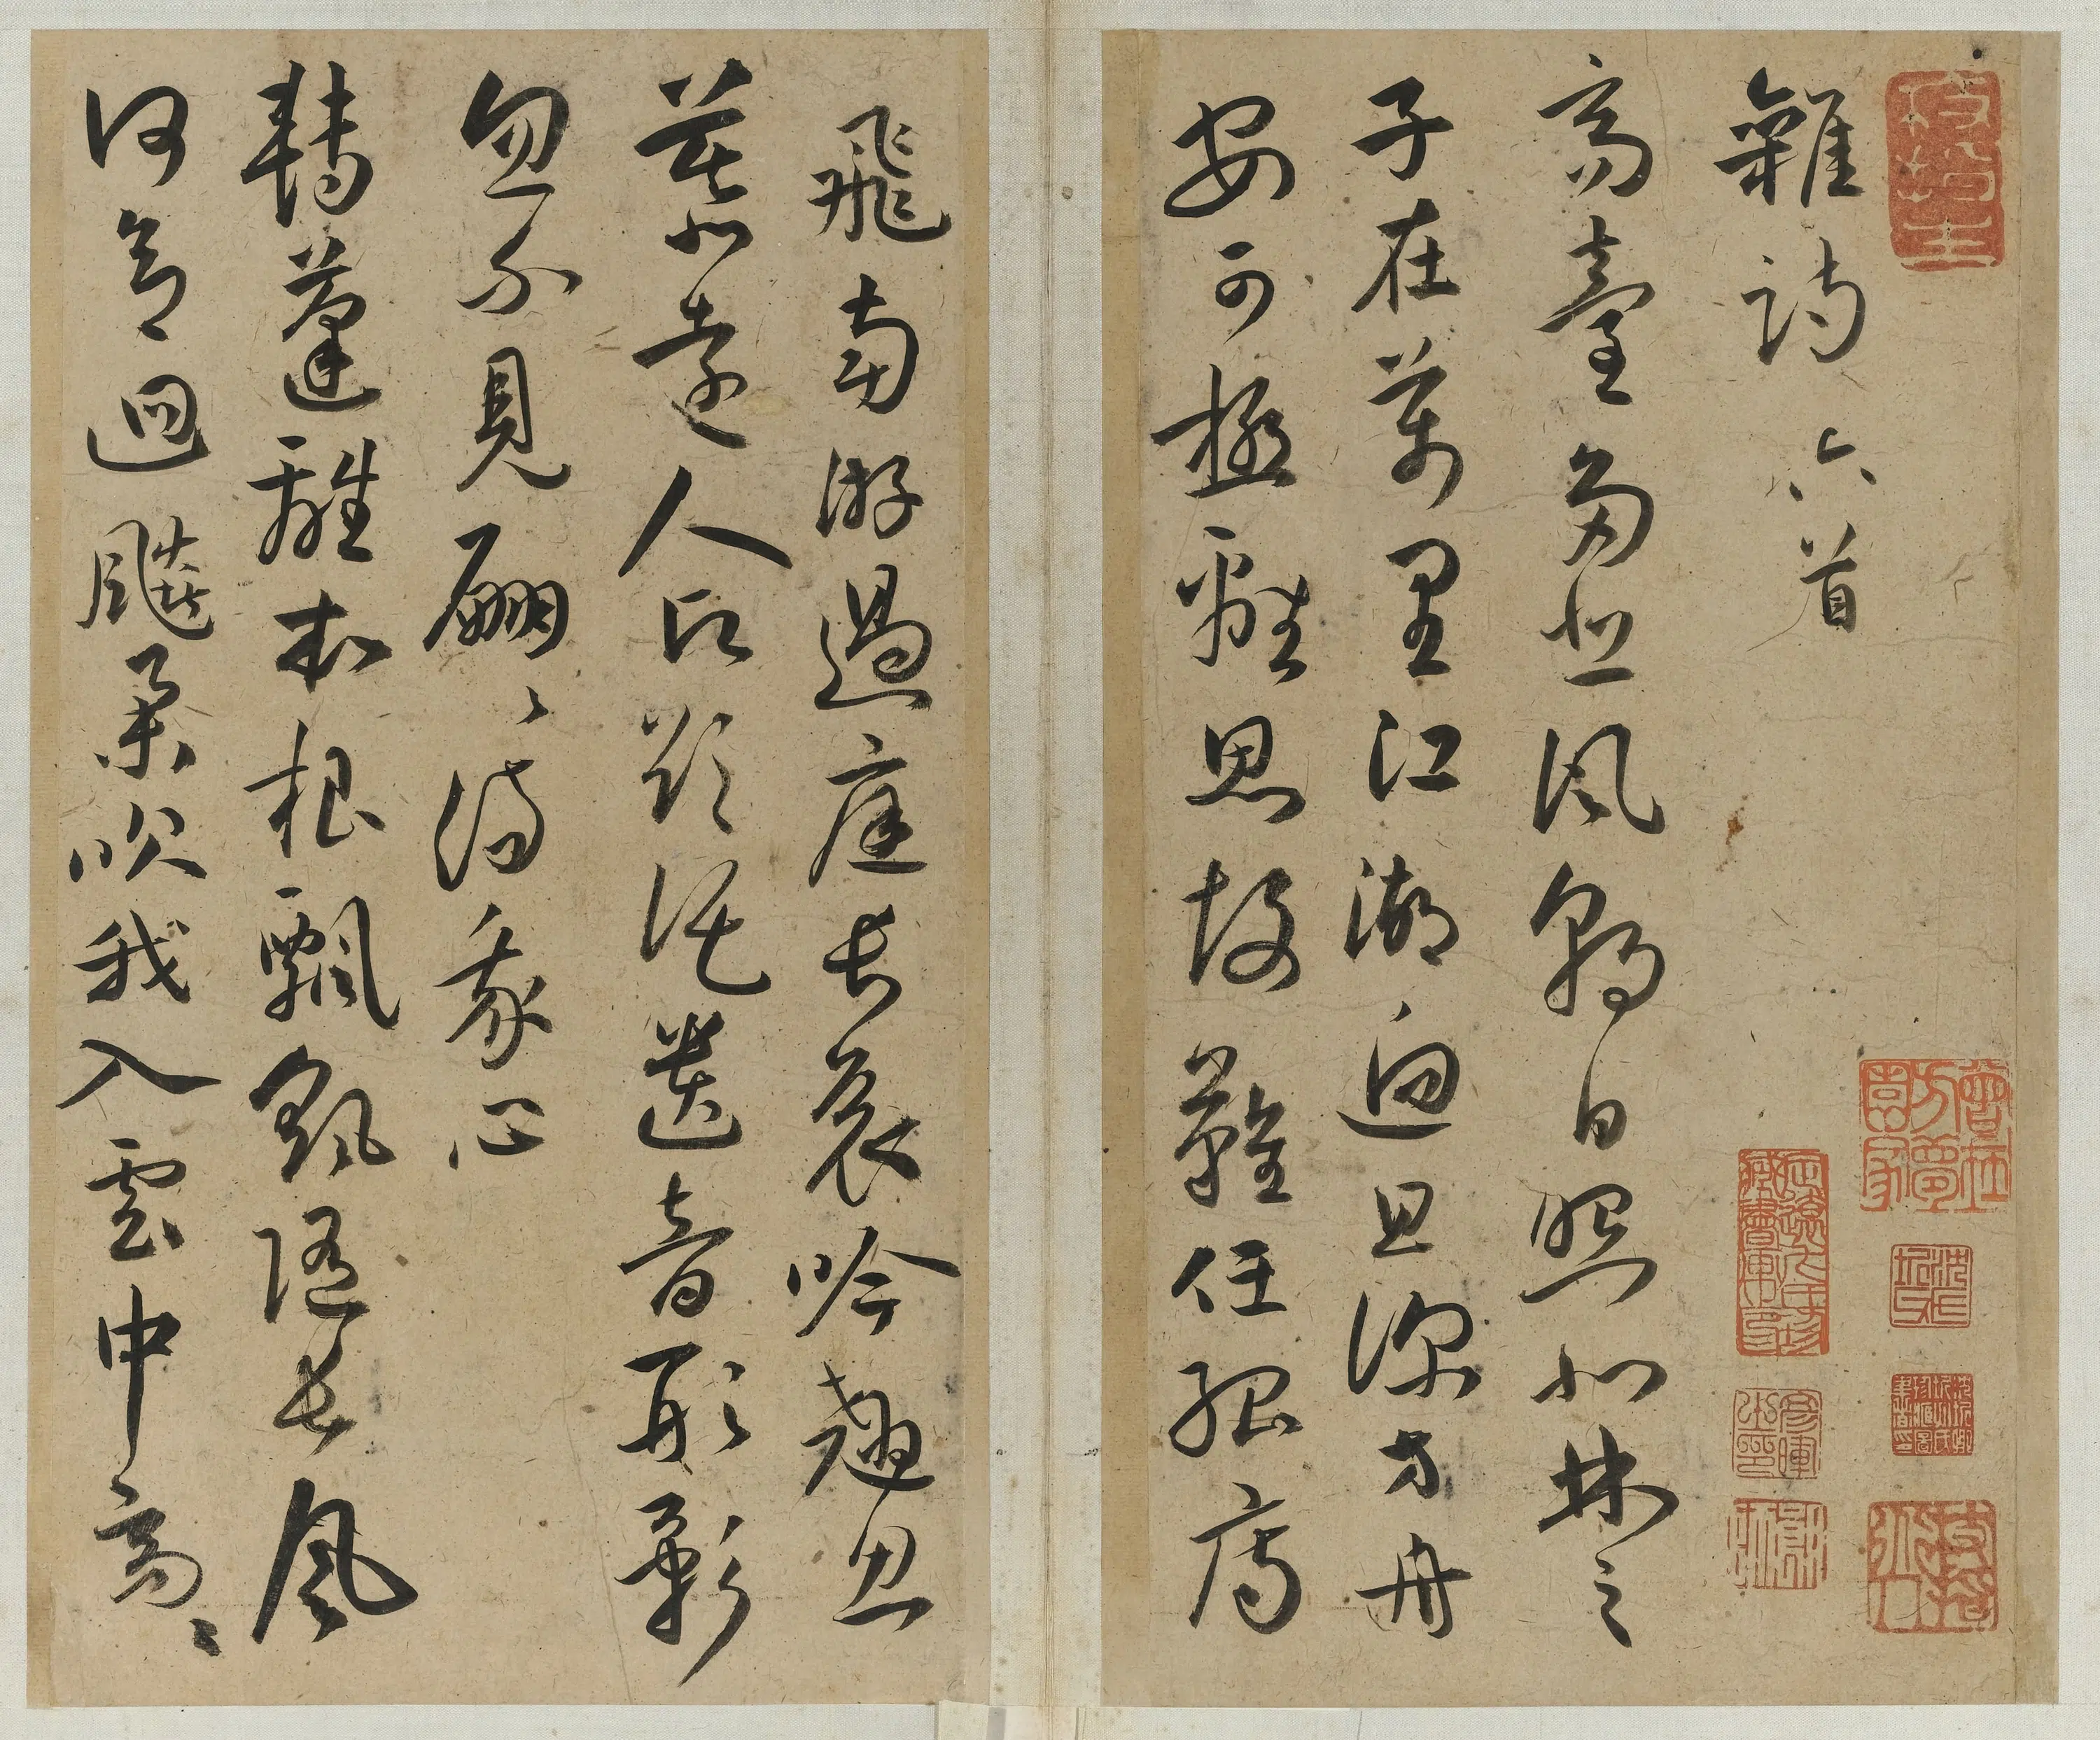 雜詩六首
高臺多悲風朝日照北林之
子在萬里江湖迥且深方舟
安可極離思故難任孤鴈
飛南游過庭長哀吟翹思
慕遠人願欲託遺音形影
忽不見翩〻傷我心
轉蓬離本根飄颻隨長風
何意迴飈舉吹我入雲中高〻
曾在方夢園家